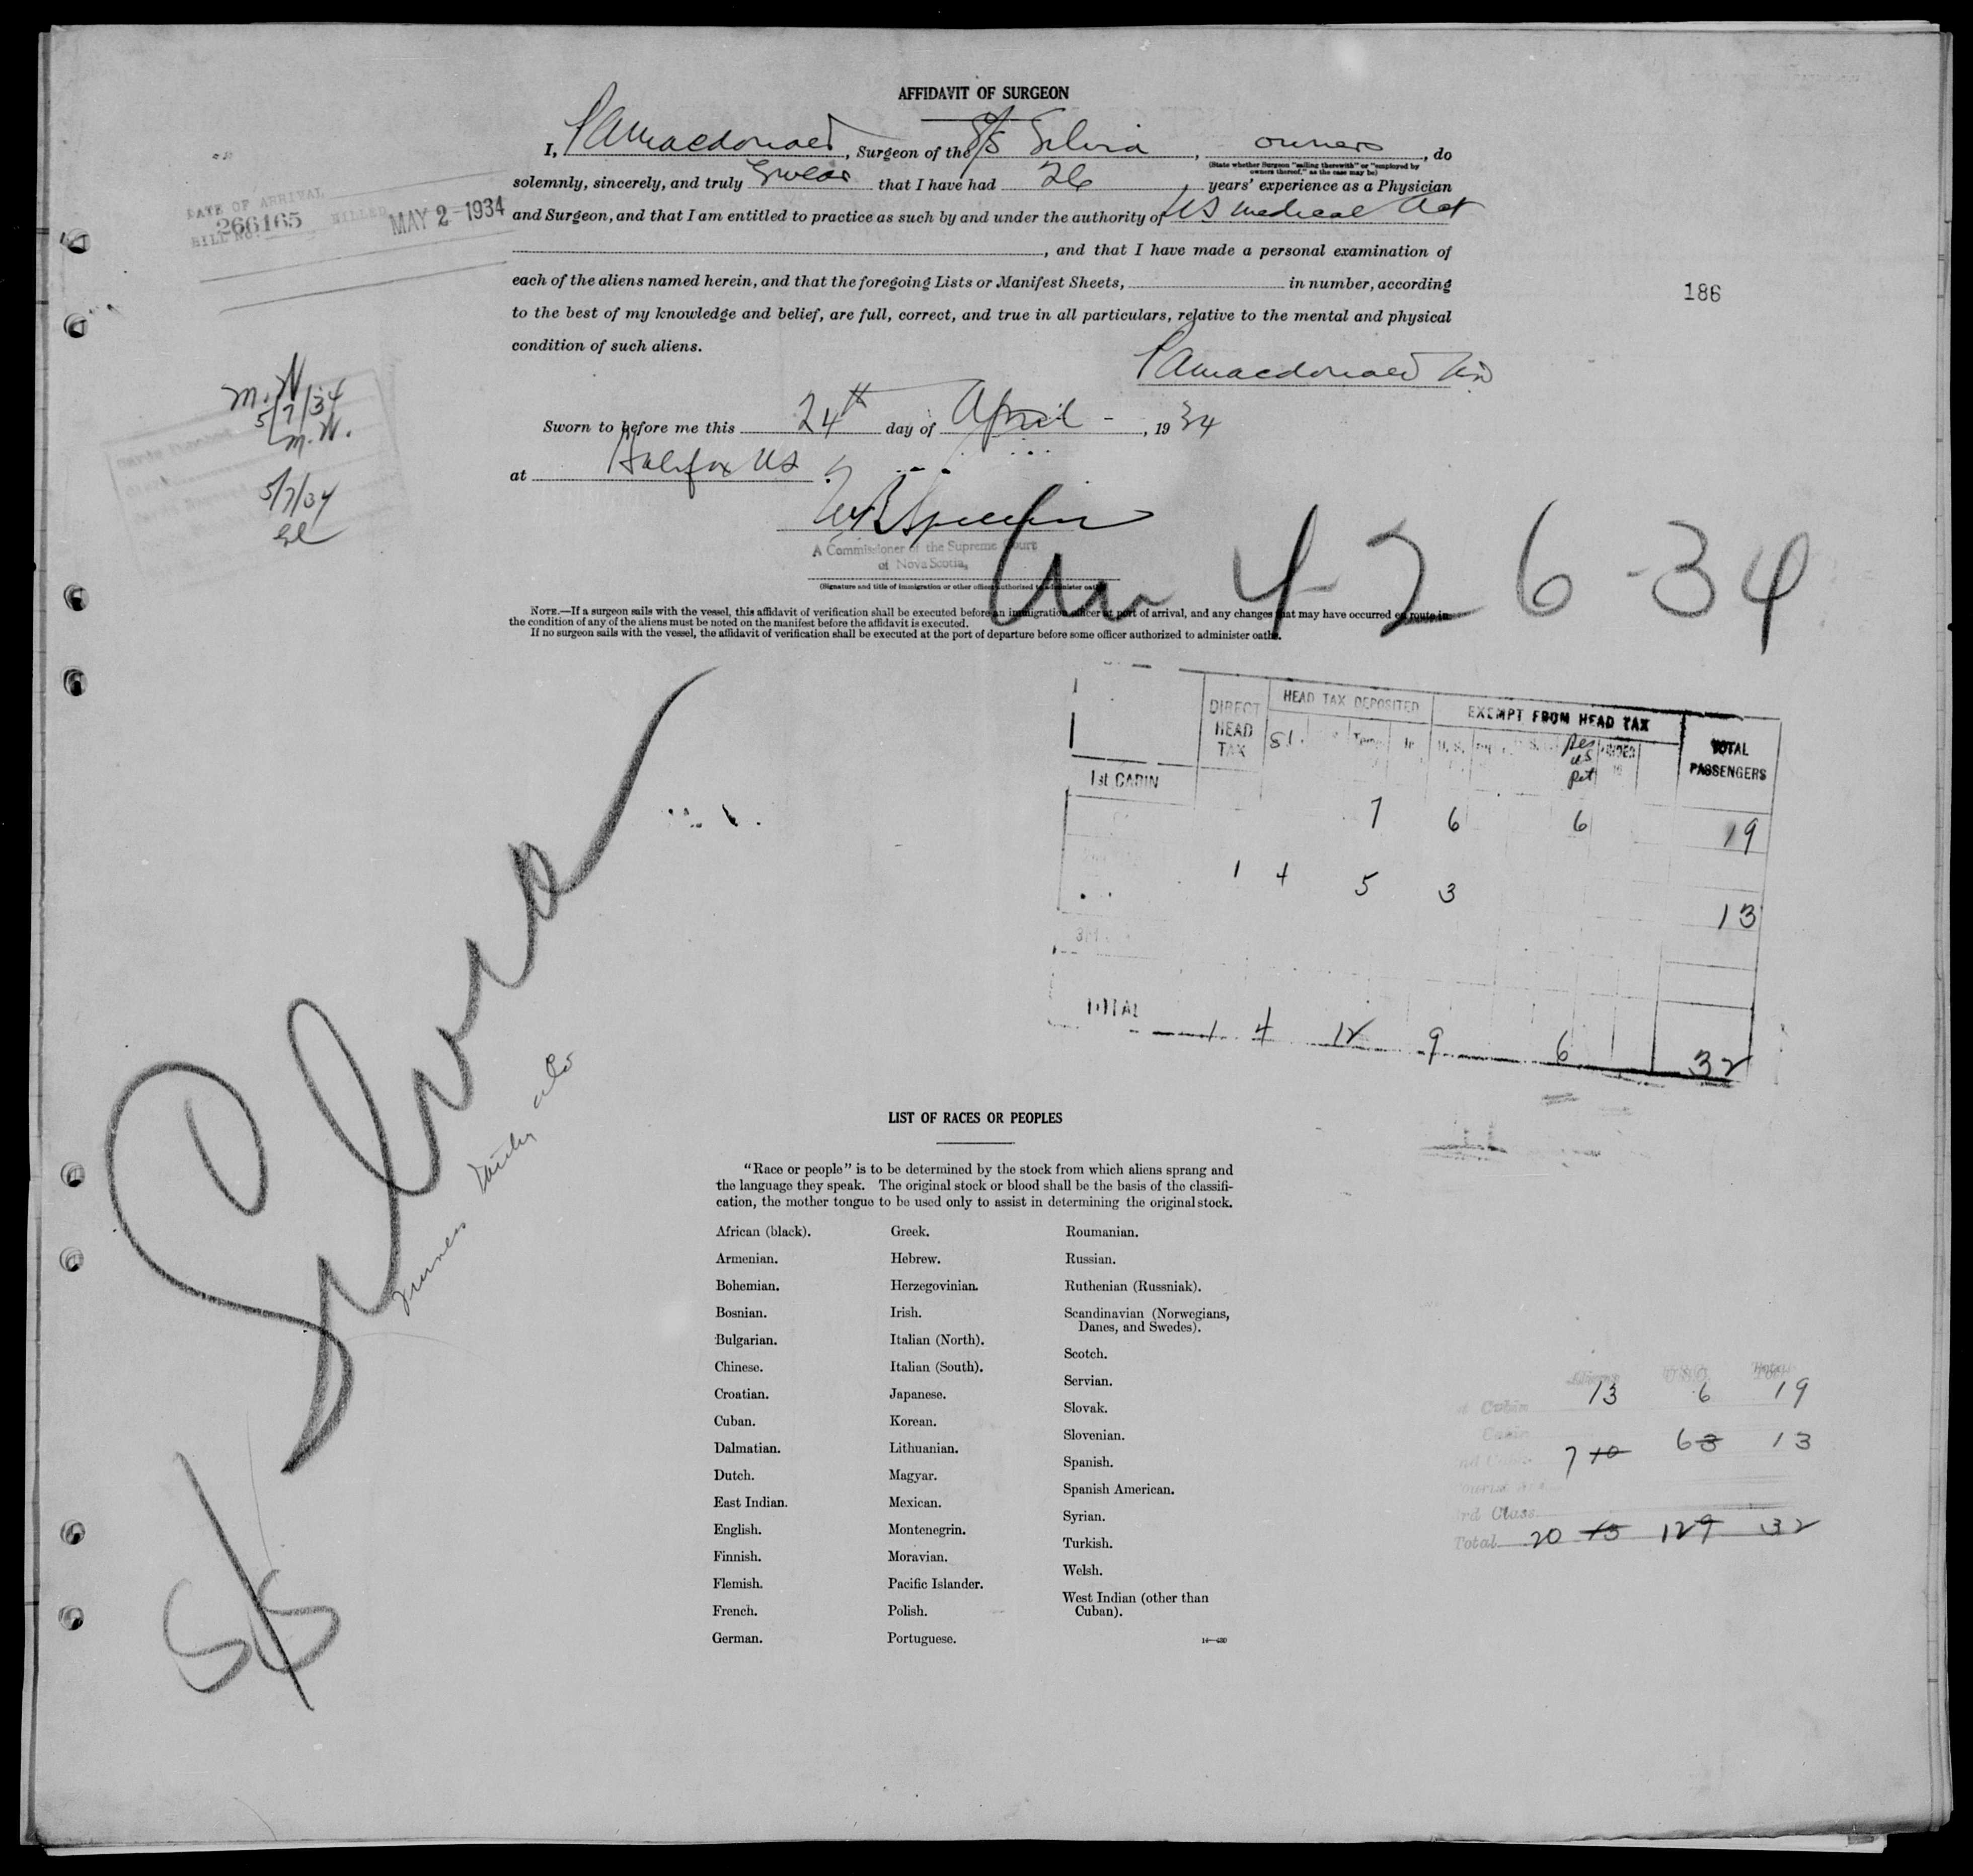 AFFIDAVIT OF SURGEON
I, Macdonald, Surgeon of the S/S Silvia, owners, do
(State whether Surgeon "sailing therewith" or "employed by
owners thereof," as the case may be)
solemnly, sincerely, and truly Swear that I have had 26 years' experience as a Physician
and Surgeon, and that I am entitled to practice as such by and under the authority of NS Medical Act
, and that I have made a personal examination of
each of the aliens named herein, and that the foregoing Lists or Manifest Sheets, in number, according
to the best of my knowledge and belief, are full, correct, and true in all particulars, relative to the mental and physical
condition of such aliens.
Macdonald MD
Sworn to before me this 24th day of April, 1934
at Halifax NS
A Commissioner of the Supreme Court
of Nova Scotia,
(Signature and title of immigration or other officer authorized to administer oaths)
NOTE.—If a surgeon sails with the vessel, this affidavit of verification shall be executed before an immigration officer at port of arrival, and any changes that may have occurred en route in
the condition of any of the aliens must be noted on the manifest before the affidavit is executed.
If no surgeon sails with the vessel, the affidavit of verification shall be executed at the port of departure before some officer authorized to administer oaths.
DATE OF ARRIVAL
BILL NO. 266165 BILLED MAY 2-1934
186
M.W
5/7/34
M.W.
5/7/34
Arr 4-26-34
DIRECT HEAD TAX
HEAD TAX DEPOSITED
EXEMPT FROM HEAD TAX
TOTAL PASSENGERS
1st CABIN
7 6 6 19
1 4 5 3 13
TOTAL 1 4 12 9 6 32
S/S Silvia
LIST OF RACES OR PEOPLES
"Race or people" is to be determined by the stock from which aliens sprang and
the language they speak. The original stock or blood shall be the basis of the classifi-
cation, the mother tongue to be used only to assist in determining the original stock.
African (black).
Armenian.
Bohemian.
Bosnian.
Bulgarian.
Chinese.
Croatian.
Cuban.
Dalmatian.
Dutch.
East Indian.
English.
Finnish.
Flemish.
French.
German.
Greek.
Hebrew.
Herzegovinian.
Irish.
Italian (North).
Italian (South).
Japanese.
Korean.
Lithuanian.
Magyar.
Mexican.
Montenegrin.
Moravian.
Pacific Islander.
Polish.
Portuguese.
Roumanian.
Russian.
Ruthenian (Russniak).
Scandinavian (Norwegians,
Danes, and Swedes).
Scotch.
Servian.
Slovak.
Slovenian.
Spanish.
Spanish American.
Syrian.
Turkish.
Welsh.
West Indian (other than
Cuban).
Aliens U.S.C. Total
Cabin 13 6 19
7 10 6 3 13
3rd Class
Total 20 13 12 9 32